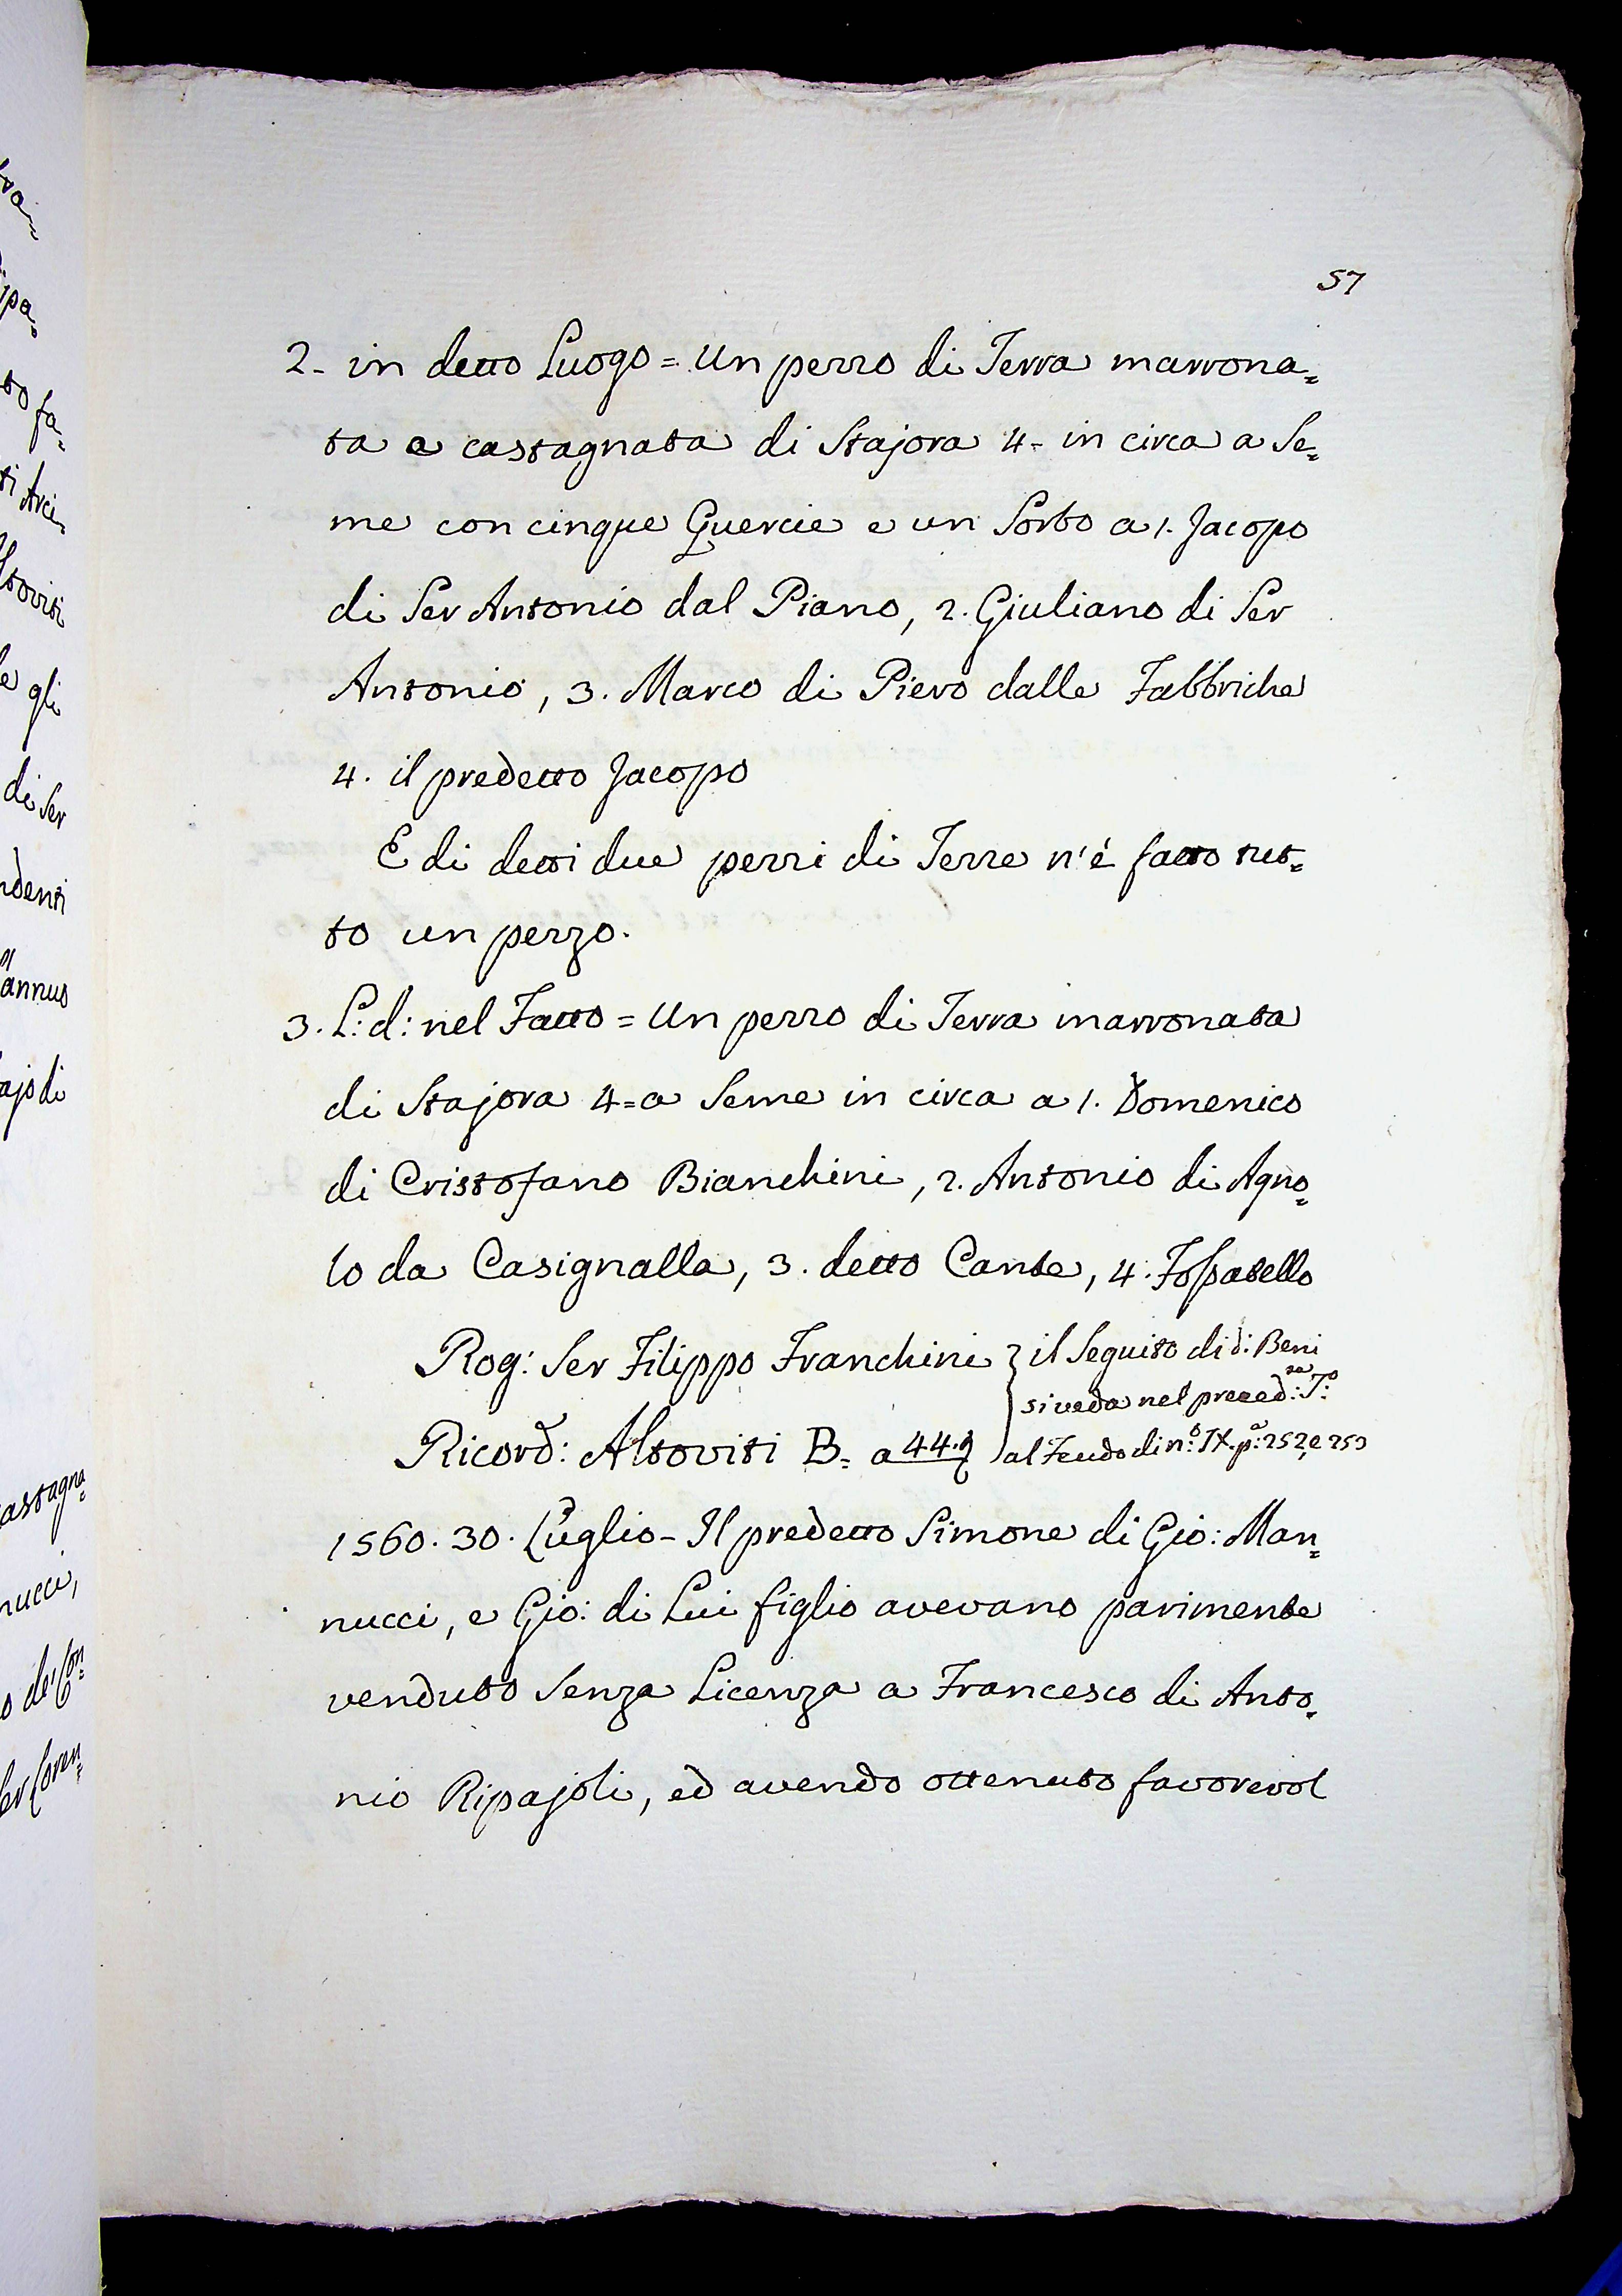 57
2- in detto Luogo = Un pezzo di Terra marrona=
ta e castagnata di Stajora 4- in circa a Se=
me con cinque Quercie e un Sorbo a 1. Jacopo
di Ser Antonio dal Piano, 2. Giuliano di Ser
Antonio, 3. Marco di Piero dalle Fabbriche
4. il predetto Jacopo
E di detti due pezzi di Terre n'è fatto tut=
to un pezzo.
3. L: d: nel Fatto = Un pezzo di Terra marronata
di Stajora 4= a Seme in circa a 1. Domenico
di Cristofano Bianchini, 2. Antonio di Agno=
lo da Casignalla, 3. detto Cante, 4. Fossatello
Rog: Ser Filippo Franchini } il Seguito di d: Beni
si veda nel preced:te T:o
Ricord: Altoviti B= a 44. al Feudo di n:o IX. p:a 252, e 253
1560. 30. Luglio - Il predetto Simone di Gio: Man=
nucci, e Gio: di Lui figlio avevano parimente
venduto Senza Licenza a Francesco di Anto=
nio Ripajoli, ed avendo ottenuto favorevol